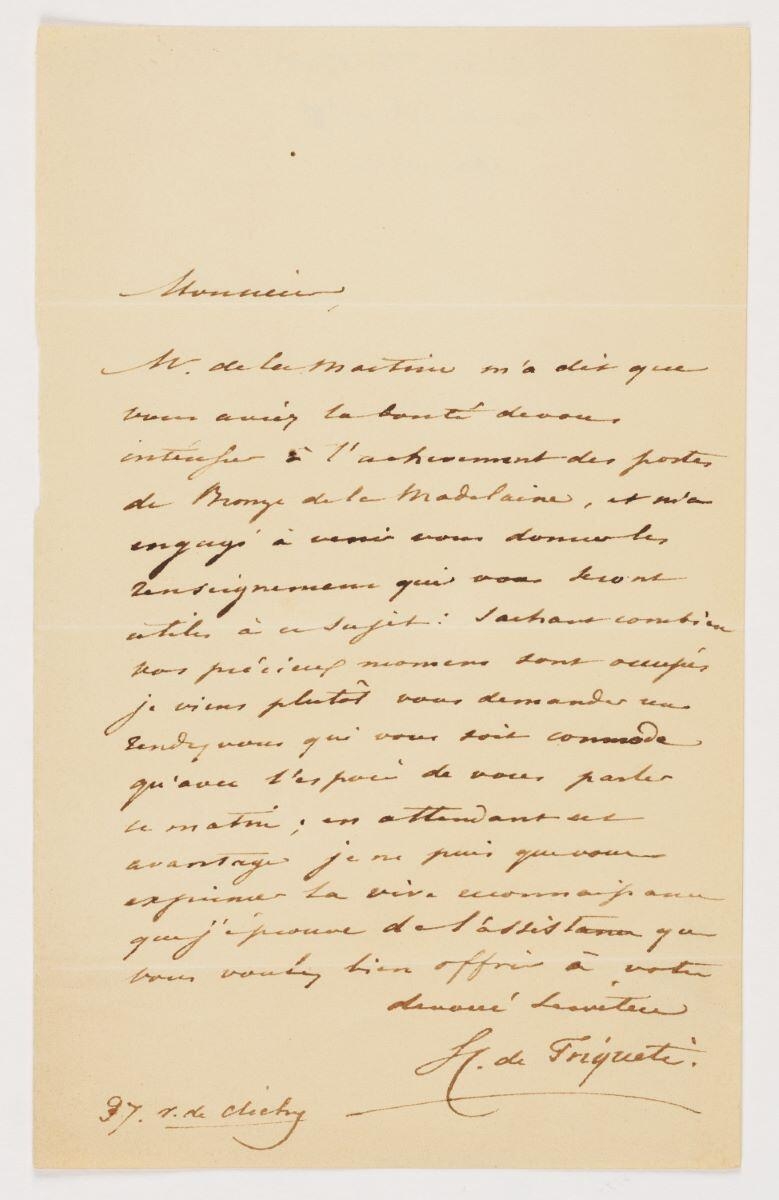 Monsieur,
Mr. de la Martine m'a dit que
vous aviez la bonté de vous
intéresser à l'achevement des portes
de Bronze de la Madelaine, et m'a
engagé à venir vous donner les
renseignemens qui vous seront
utiles à ce sujet : Sachant combien
vos précieux momens sont occupés
je viens plutôt vous demander un
rendez vous qui vous soit commode
qu'avec l'espoir de vous parler
ce matin ; en attendant cet
avantage je ne puis que vous
exprimer la vive reconnaissance
que j'éprouve de l'assistance que
vous voulez bien offrir à votre
devoué Serviteur
H. de Triqueti.
37. r. de Clichy